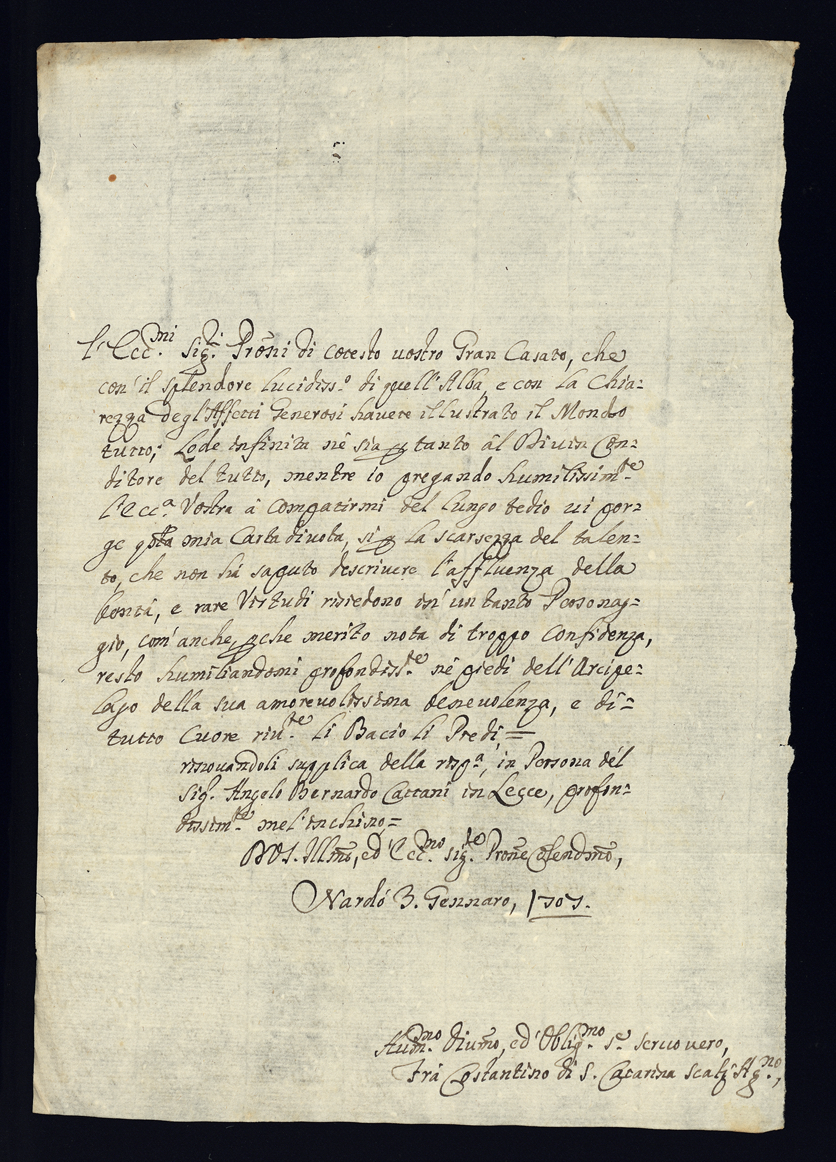 l'Ecc.mi Sig.ri Prōni di cotesto vostro Gran Casato, che
con' il splendore lucidiss.o di quell'Alba, e con la Chia=
rezza degl'Affetti Generosi havete illustrato il Mondo
tutto; Lode infinita nè sia p tanto âl Divin Con=
ditore del tutto, mentre io pregando humilissim.te
l'Ecc.a Vostra à compatirmi del lungo tedio vi por=
ge qsta mia Carta divota, si p la scarsezza del talen=
to, che non há saputo descrivere l'affluenza della
bontà, e rare Virtudi risiedono in' un tanto Personag=
gio, com' anche, pche merito nota di troppo confidenza,
resto humiliandomi profondiss.te nè piedi dell'Arcipe=
lago della sua amorevolissima benevolenza, e di=
tutto Cuore riv.te li Bacio li Piedi, =
rinovandoli supplica della risp.a, in Persona dél
Sig.r Angelo Bernardo Cattani in Lecce, profon=
dissim.te mel'inchino,=
D V S. Illmō, ed' Ecc.mo Sig.re Pronē Colendmō,
Nardò 3. Gennaro, 1707.
Hum.mo Divmō, ed' Oblig.mo S.e servo vero,
Frà Costantino di S. Catarina Scalz' Ag.no,